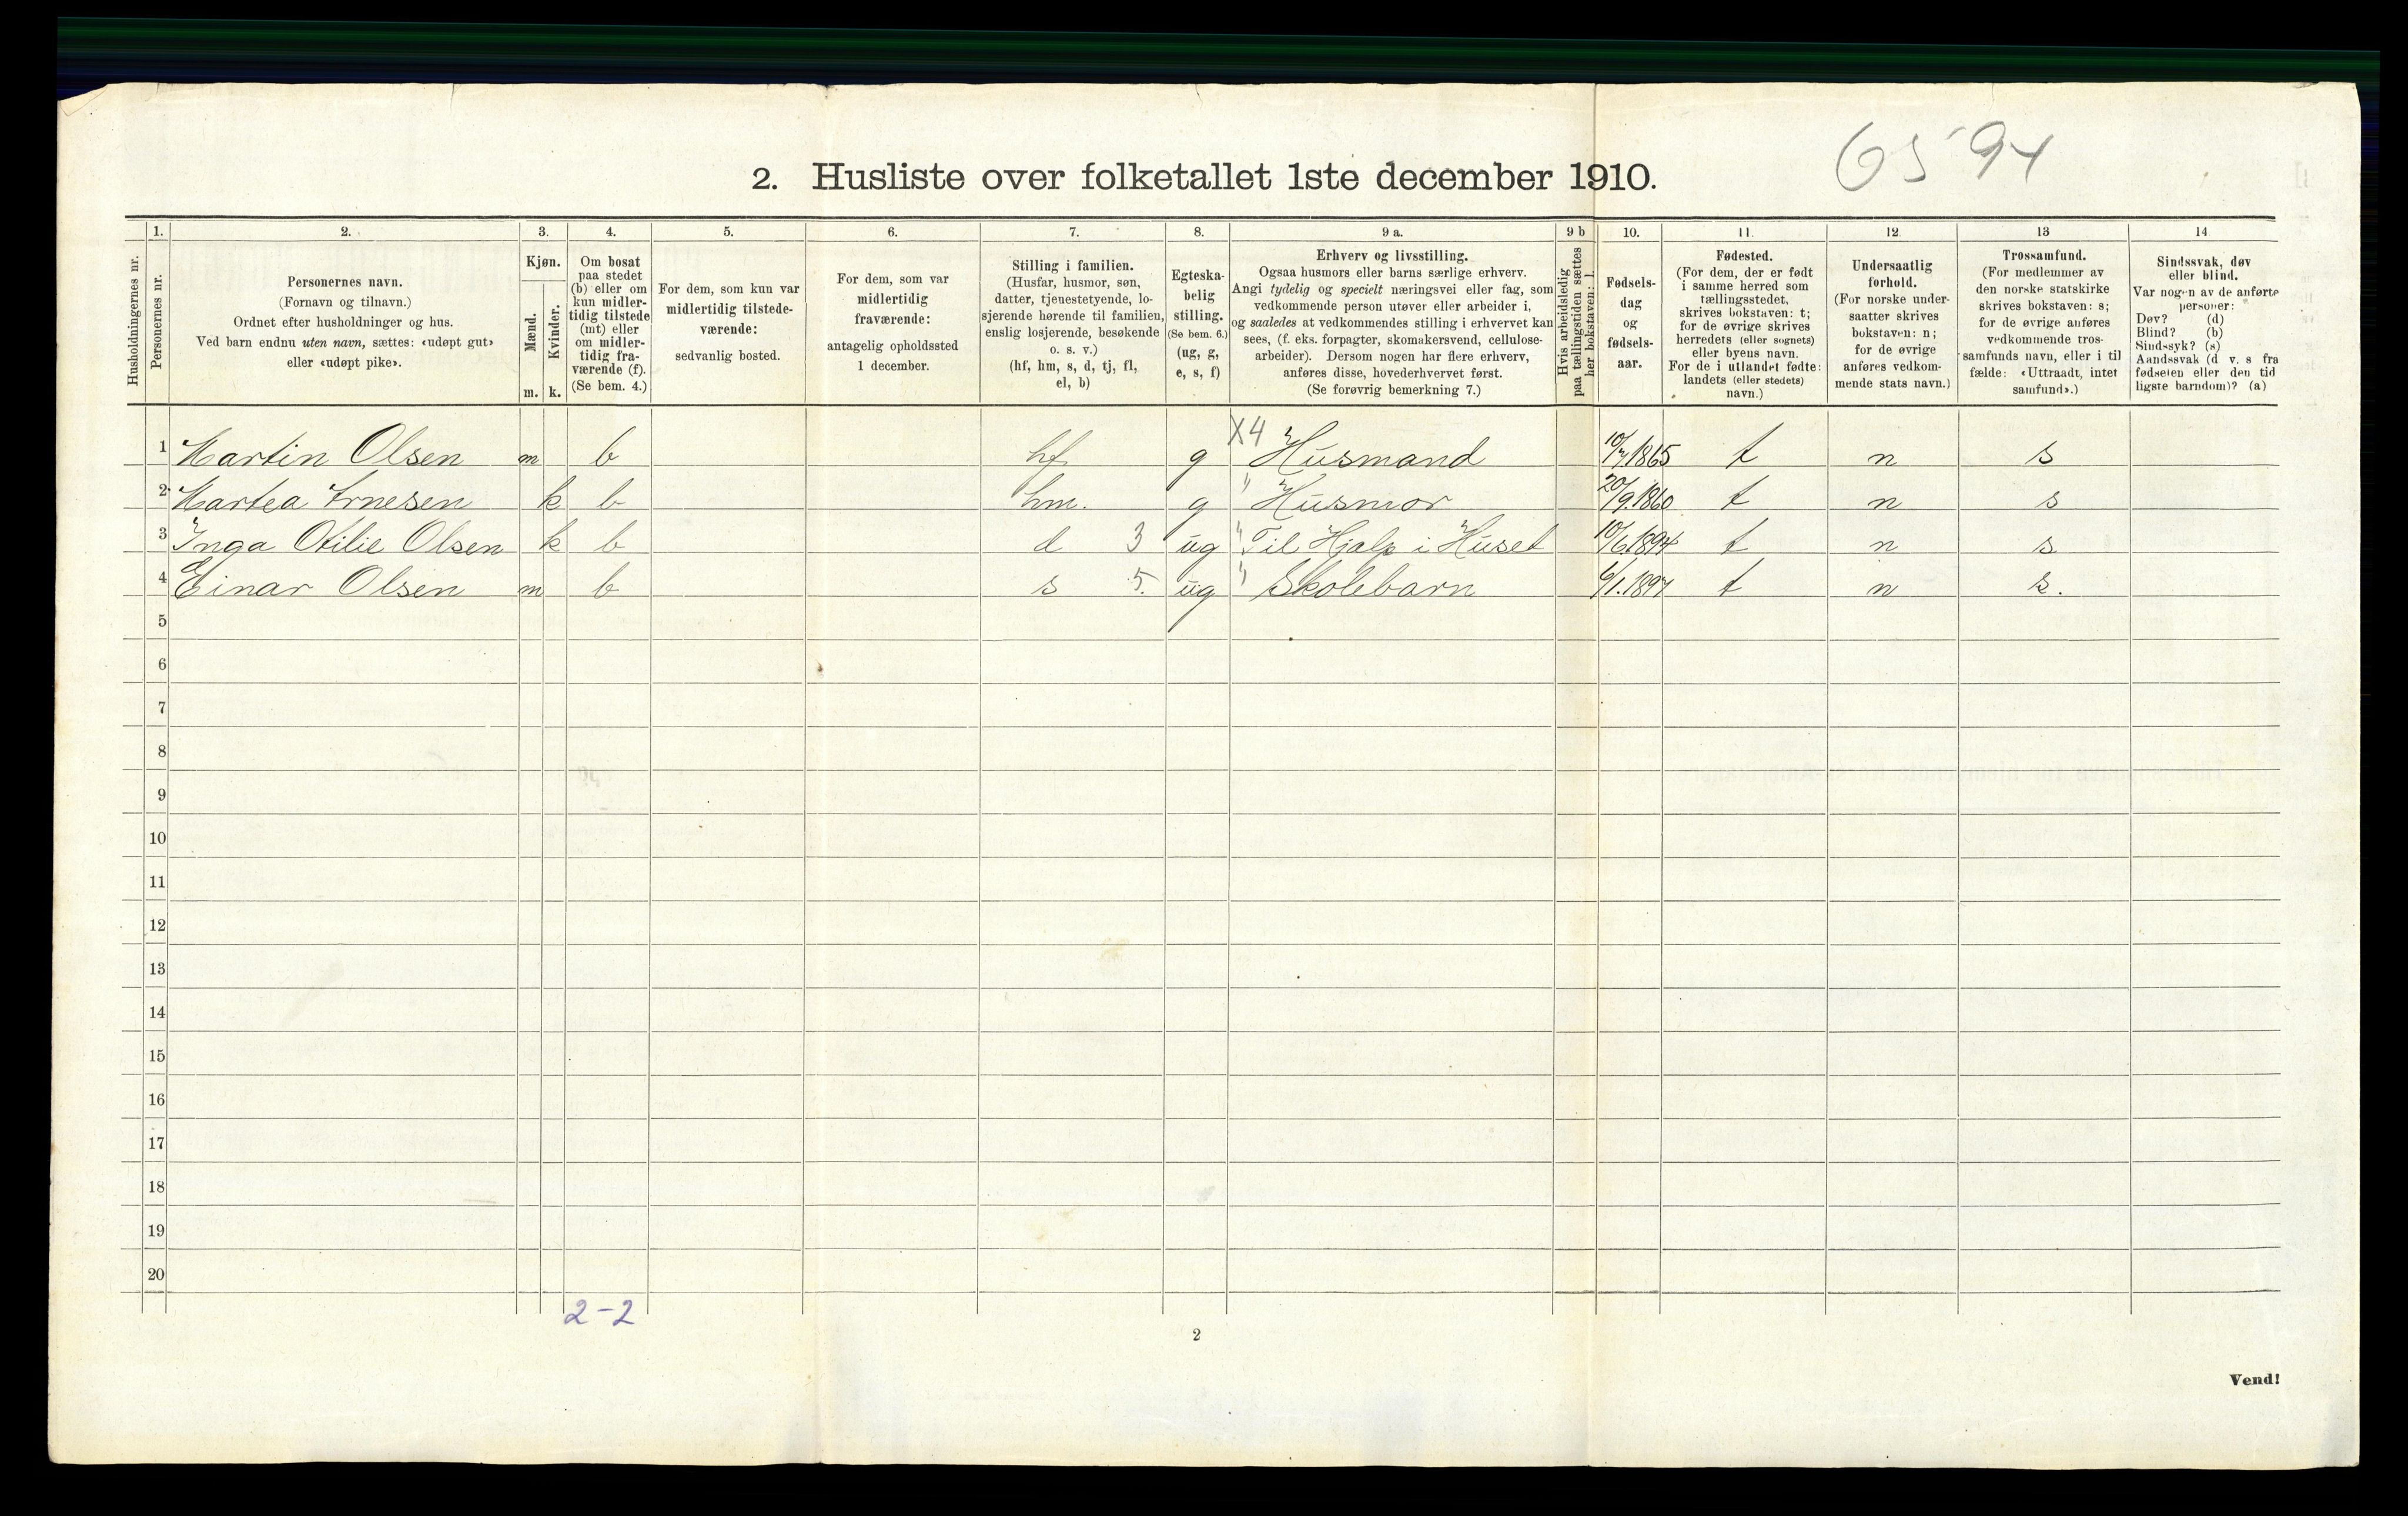 65 94
2. Husliste over folketallet 1ste december 1910.
Husholdningernes nr.
1.
Personernes nr.
2.
Personernes navn.
(Fornavn og tilnavn.)
Ordnet efter husholdninger og hus.
Ved barn endnu uten navn, sættes: «udøpt gut»
eller «udøpt pike».
3.
Kjøn.
Mænd.
Kvinder.
m. k.
4.
Om bosat
paa stedet
(b) eller om
kun midler-
tidig tilstede
(mt) eller
om midler-
tidig fra-
værende (f).
(Se bem. 4.)
5.
For dem, som kun var
midlertidig tilstede-
værende:
sedvanlig bosted.
6.
For dem, som var
midlertidig
fraværende:
antagelig opholdssted
1 december.
7.
Stilling i familien.
(Husfar, husmor, søn,
datter, tjenestetyende, lo-
sjerende hørende til familien,
enslig losjerende, besøkende
o. s. v.)
(hf, hm, s, d, tj, fl,
el, b)
8.
Egteska-
belig
stilling.
(Se bem. 6.)
(ug, g,
e, s, f)
9 a.
Erhverv og livsstilling.
Ogsaa husmors eller barns særlige erhverv.
Angi tydelig og specielt næringsvei eller fag, som
vedkommende person utøver eller arbeider i,
og saaledes at vedkommendes stilling i erhvervet kan
sees, (f. eks. forpagter, skomakersvend, cellulose-
arbeider). Dersom nogen har flere erhverv,
anføres disse, hovederhvervet først.
(Se forøvrig bemerkning 7.)
9 b
Hvis arbeidsledig
paa tællingstiden sættes
her bokstaven: l.
10.
Fødsels-
dag
og
fødsels-
aar.
11.
Fødested.
(For dem, der er født
i samme herred som
tællingsstedet,
skrives bokstaven: t;
for de øvrige skrives
herredets (eller sognets)
eller byens navn.
For de i utlandet fødte:
landets (eller stedets)
navn.)
12.
Undersaatlig
forhold.
(For norske under-
saatter skrives
bokstaven: n;
for de øvrige
anføres vedkom-
mende stats navn.)
13
Trossamfund.
(For medlemmer av
den norske statskirke
skrives bokstaven: s;
for de øvrige anføres
vedkommende tros-
samfunds navn, eller i til
fælde: «Uttraadt, intet
samfund».)
14
Sindssvak, døv
eller blind.
Var nogen av de anførte
personer:
Døv? (d)
Blind? (b)
Sindssyk? (s)
Aandssvak (d v. s fra
fødselen eller den tid
ligste barndom)? (a)
X4
1 Martin Olsen m b hf g Husmand 10/7 1865 t n s
2 Martea Arnesen k b hm. g " Husmor 20/9.1860 t n s
3 Inga Otilie Olsen k b d 3 ug " Til Hjælp i Huset 10/6.1894 t n s.
4 Einar Olsen m b s 5. ug " Skolebarn 6/1.1897 t n s.
5
6
7
8
9
10
11
12
13
14
15
16
17
18
19
20
2-2
2
Vend!